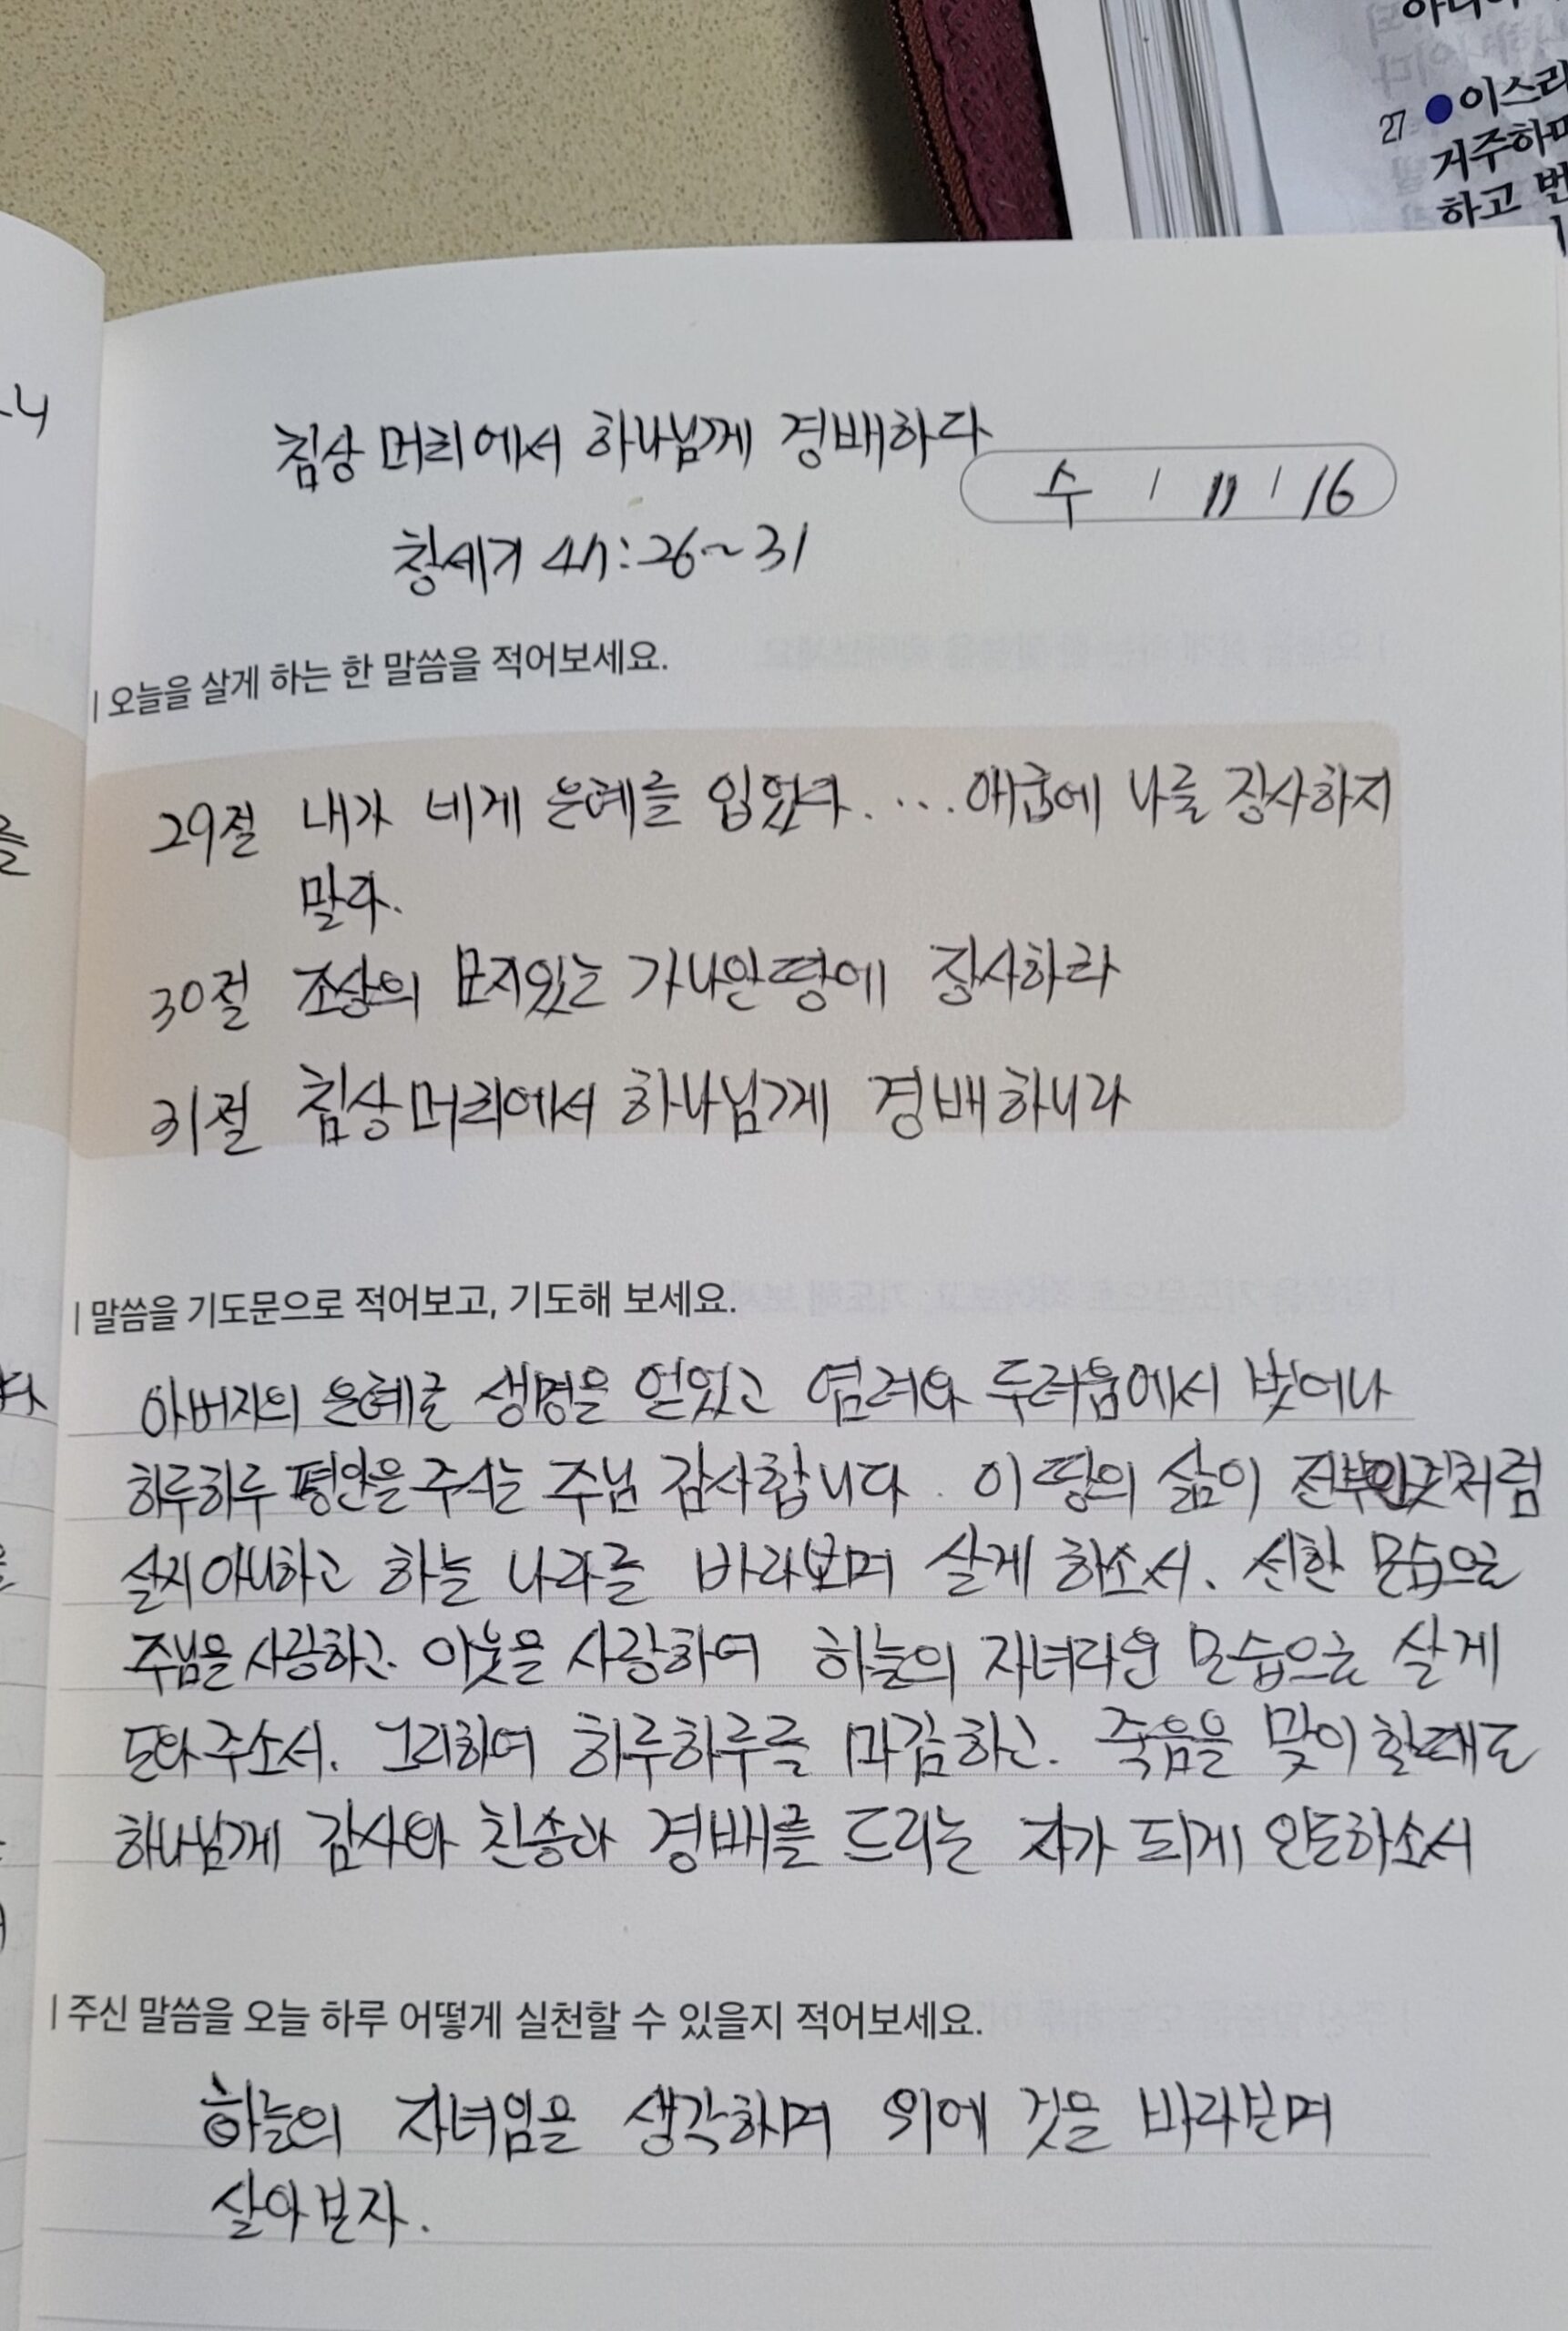 27 ●이스라
거주하며
하고 번
침상 머리에서 하나님께 경배하다
수 / 11 / 16
창세기 47:26~31
| 오늘을 살게 하는 한 말씀을 적어보세요.
29절 내가 네게 은혜를 입었다. ... 애굽에 나를 장사하지
말라.
30절 조상의 묘지있는 가나안땅에 장사하라
31절 침상머리에서 하나님께 경배하니라
| 말씀을 기도문으로 적어보고, 기도해 보세요.
아버지의 은혜로 생명을 얻었고 염려와 두려움에서 벗어나
하루하루 평안을 주시는 주님 감사합니다. 이 땅의 삶이 전부인것처럼
살지아니하고 하늘 나라를 바라보며 살게 하소서. 선한 모습으로
주님을 사랑하고. 이웃을 사랑하여 하늘의 자녀다운 모습으로 살게
도와주소서. 그리하여 하루하루를 마감하고. 죽음을 맞이할때도
하나님께 감사와 찬송과 경배를 드리는 자가 되게 인도하소서
| 주신 말씀을 오늘 하루 어떻게 실천할 수 있을지 적어보세요.
하늘의 자녀임을 생각하며 위에 것을 바라보며
살아보자.